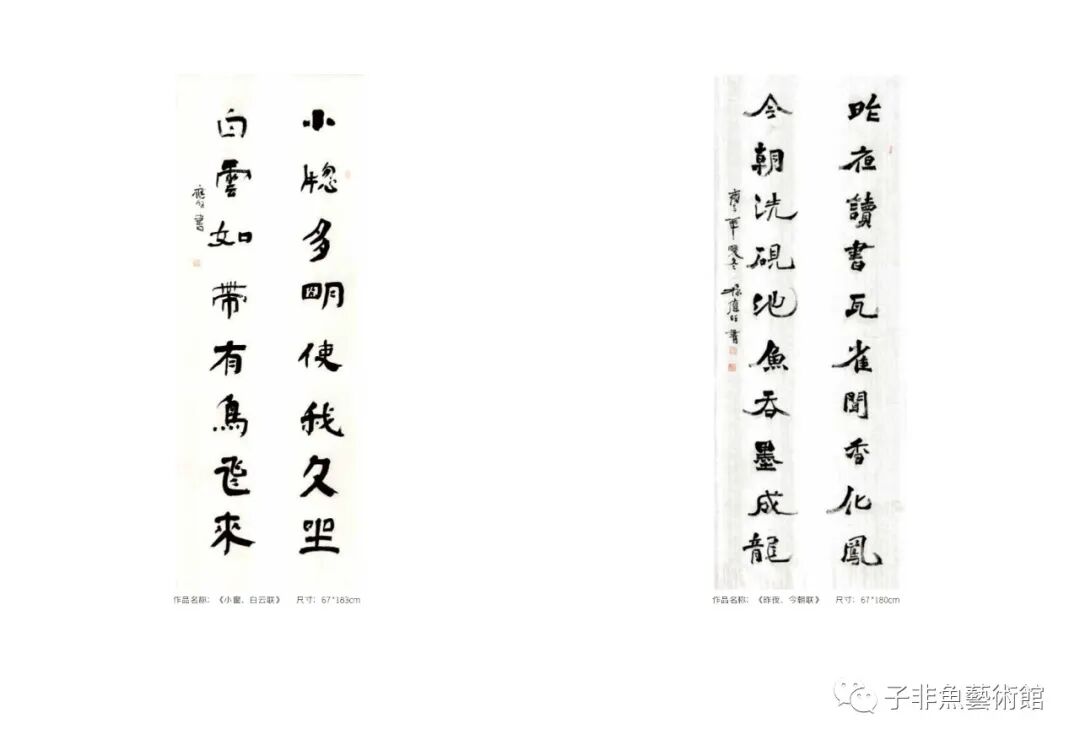 小窻多明使我久坐
白雲如帶有鳥飛來
應召書
作品名称：《小窗、白云联》 尺寸：67*183cm
昨夜讀書瓦雀聞香化鳳
今朝洗硯池魚吞墨成龍
作品名称：《昨夜、今朝联》 尺寸：67*180cm
子非魚藝術館